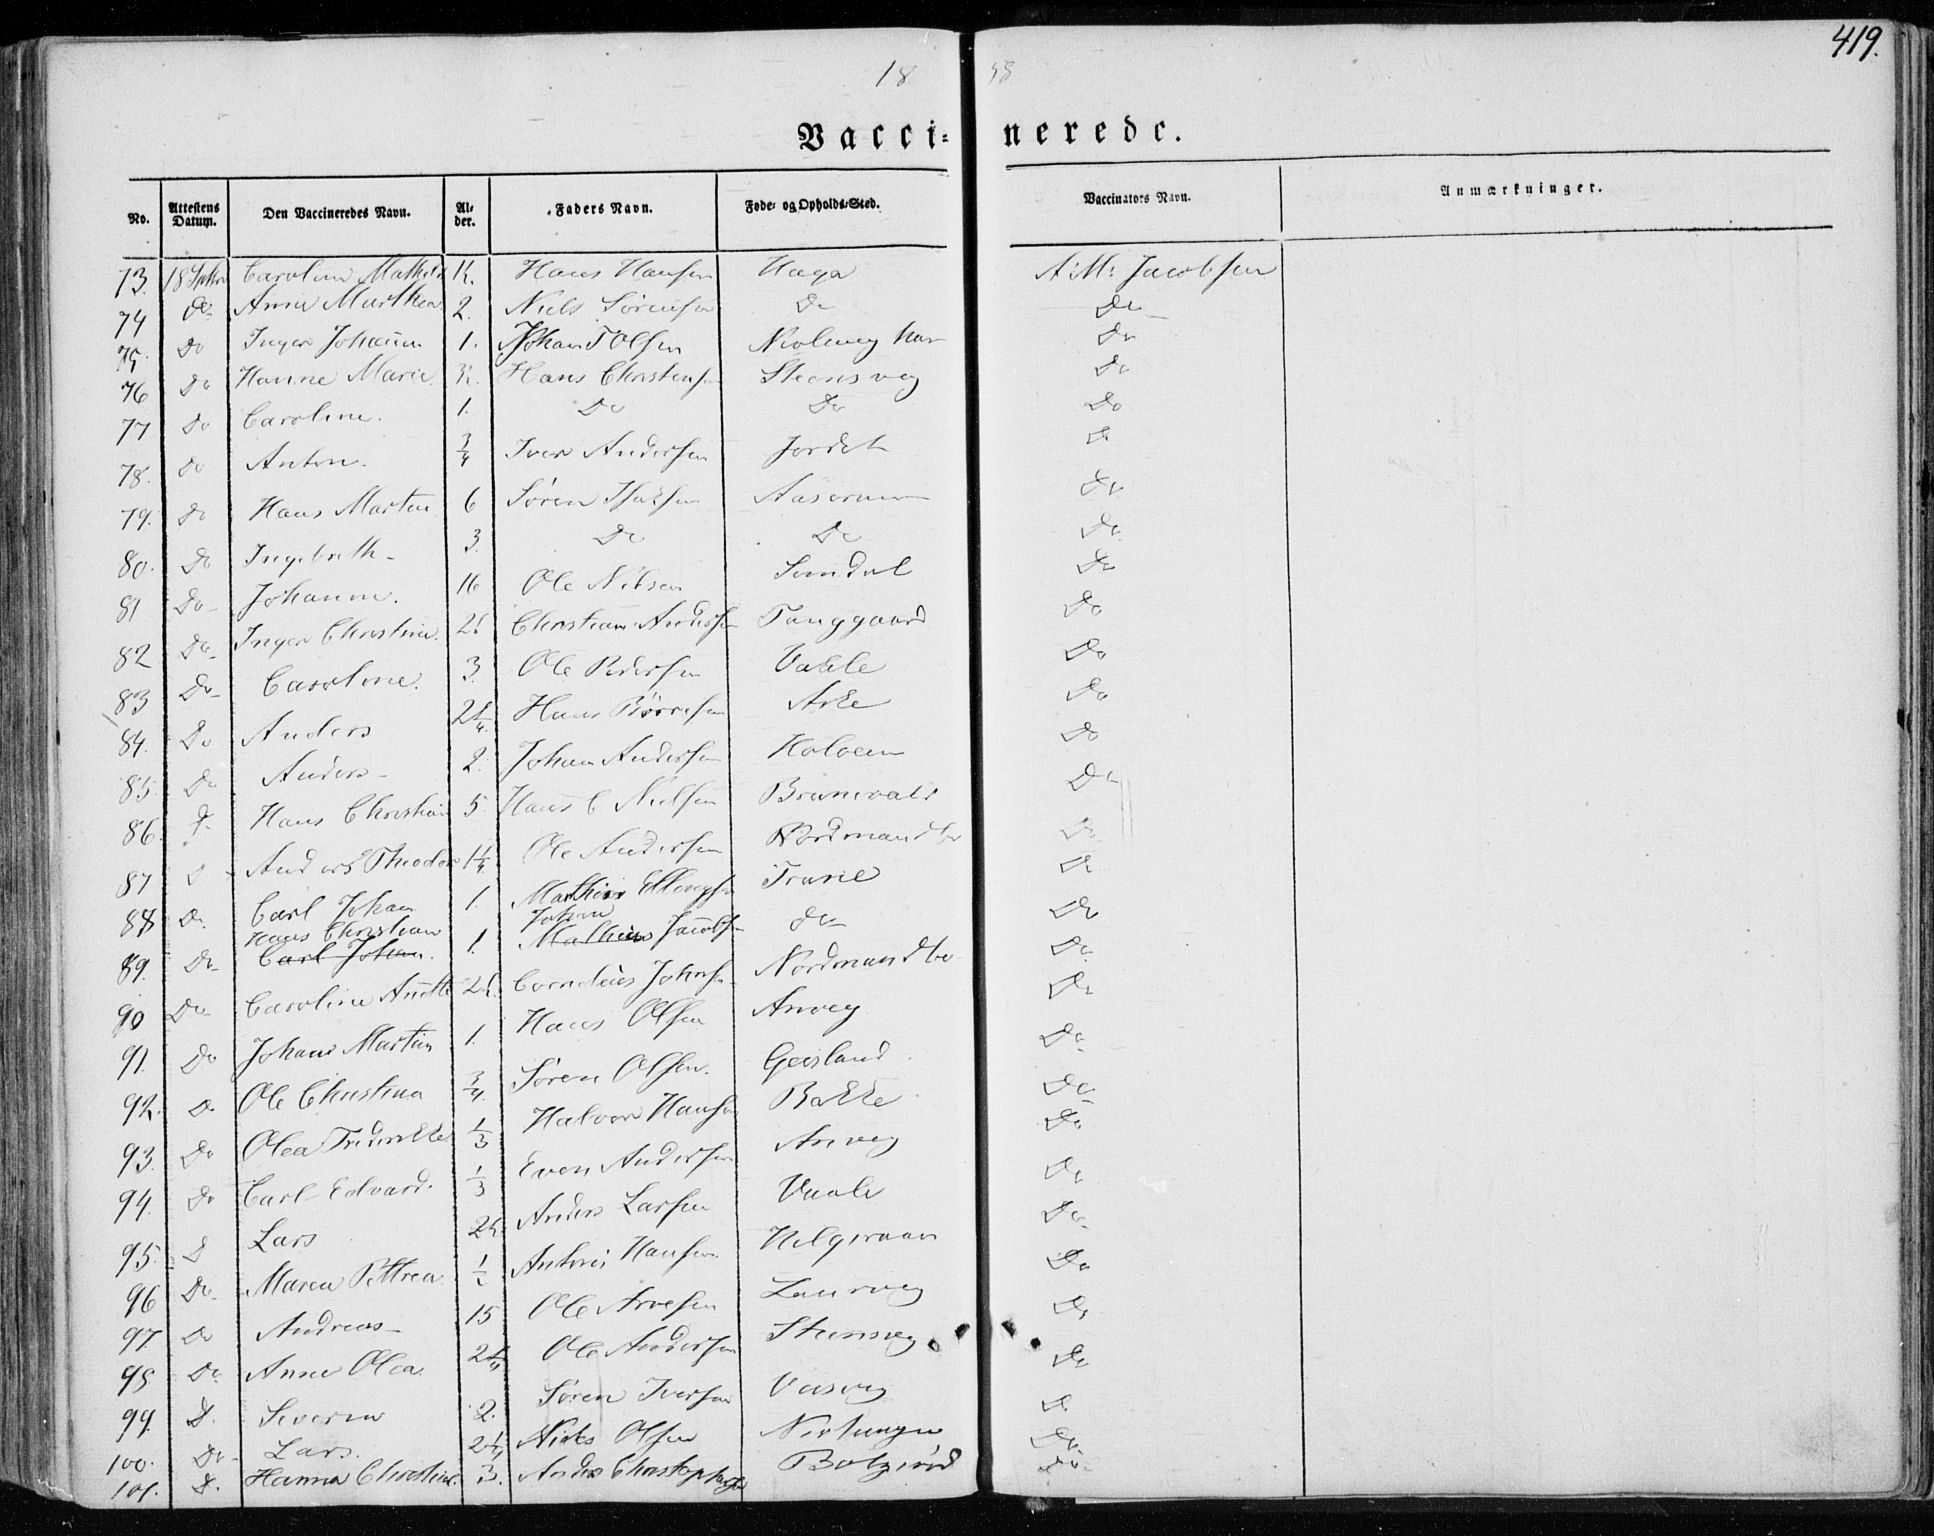 419.
18 58
Vaccinerede.
No. Attestens Datum. Den Vaccineredes Navn. Alder. Faders Navn. Føde- og Opholds-Sted. Vaccinators Navn. Anmærkninger.
73. 18 Septbr Caroline Mathilde 1½. Hans Hansen Haga A: M: Jacobsen
74 Do Anne Marthea 2. Niels Sørensen Do Do
75. Do Inger Johanne 1. Johan T Olsen Do
76 Do Hanne Marie ½. Hans Christensen Steensveg Do
77 Do Caroline. 1. Do Do Do
78. Do Anton. 3/4 Iver Andersen Jordet Do
79. Do Hans Martin 6 Søren Isaksen Aaserum Do
80. Do Ingebreth 3. Do Do Do
81 Do Johanne. 16 Ole Nilsen Sundal Do
82 Do Inger Christine. 2½ Christian Andersen Tanggaard Do
83 Do Caroline. 3. Ole Pedersen Vaale Do
84. Do Anders 2¼. Hans Börresen Aske Do
85. Do Anders 2. Johan Andersen Holveen Do
86. D. Hans Christian 5. Hans C Nielsen Brunevald Do
87 D Anders Theodor 1¼ Ole Andersen Nordmandbo Do
88 Do Carl Johan 1. Mathias Ellevgsen Trane Do
Hans Christian Johan
89. Do Carl Johan. 1. Mathias Jacobsen do Do
90 Do Caroline Anette 2½. Cornelius Johnsen Nordmandbo Do
91. Do Johan Martin 1. Hans Olsen Anveg Do
92. D. Ole Christina 3/4. Søren Olsen. Geisland Do
93. Do Olea Fredrikke 1/3 Halvor Hansen Bakke Do
94. Do Carl Edvard. 1/3 Even Andersen Anveg Do
95. D Lars 2½. Anders Larsen Vaale Do
96 Do Maren Pettrea 1/2 Antoni Hansen Helgeraaen Do
97 Do Andreas 15 Ole Arvesen Laurveg Do
98 Do Anne Olea 2¼ Ole Andersen Steensveg Do
99. D. Severin 2. Søren Iversen Veisveg D
100. Do Lars. 2¼ Niels Olsen Do
101. D. Hanna Christine. 3. Anders Christophersen Do